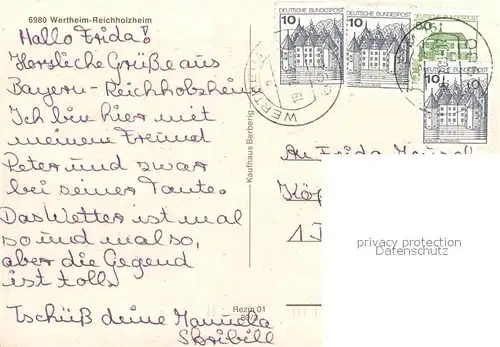 6980 Wertheim-Reichholzheim
Hallo Frida!
Herzliche Grüße aus
Bayern-Reichholzheim
Ich bin hier mit
meinem Freund
Peter und zwar
bei seiner Tante.
Das Wetter ist mal
so und mal so,
aber die Gegend
ist toll.
Tschüß deine Manuela
Kaufhaus Berberig
Rezm 01
DEUTSCHE BUNDESPOST
10
DEUTSCHE BUNDESPOST
10
DEUTSCHE BUNDESPOST
10
WERTHEIM
An Frida
privacy protection
Datenschutz